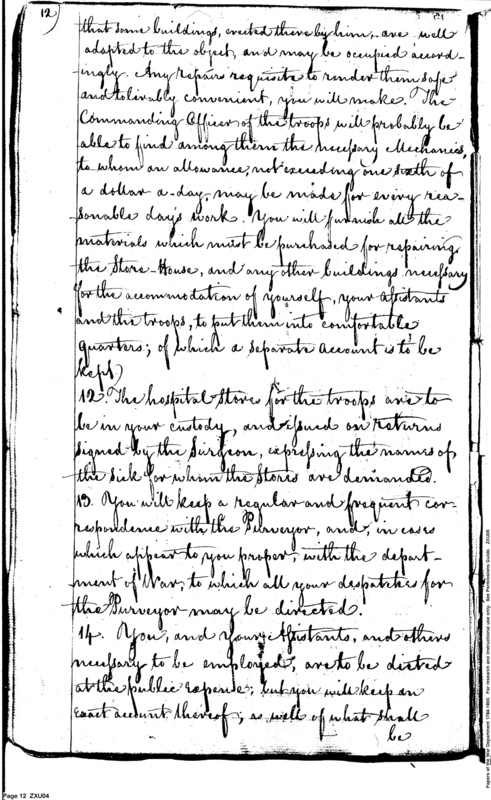 12)
that some buildings, erected there by him, are well
adapted to the object, and may be occupied accord-
ingly. Any repairs requisite to render them safe
and tolerably convenient, you will make. The
Commanding Officer of the troops will probably be
able to find among them the necessary Mechanics,
to whom an allowance, not exceeding one sixth of
a dollar a-day, may be made for every rea-
sonable day's work. You will furnish all the
materials which must be purchased for repairing
the Store-House, and any other buildings necessary
for the accommodation of yourself, your Assistants
and the troops, to put them into comfortable
quarters; of which a separate account is to be
kept)
12. The hospital Stores for the troops are to
be in your custody, and issued on returns
signed by the Surgeon, expressing the names of
the sick for whom the Stores are demanded.
13. You will keep a regular and frequent cor-
respondence with the Purveyor, and, in cases
which appear to you proper, with the depart-
ment of War, to which all your despatches for
the Purveyor may be directed.
14. You, and your Assistants, and others
necessary to be employed, are to be dieted
at the public expense; but you will keep an
exact account thereof; as well of what shall
be
Page 12 ZXU04
Papers of the War Department 1784-1800. For research and instructional use only. See Permissions Guide. ZXU05